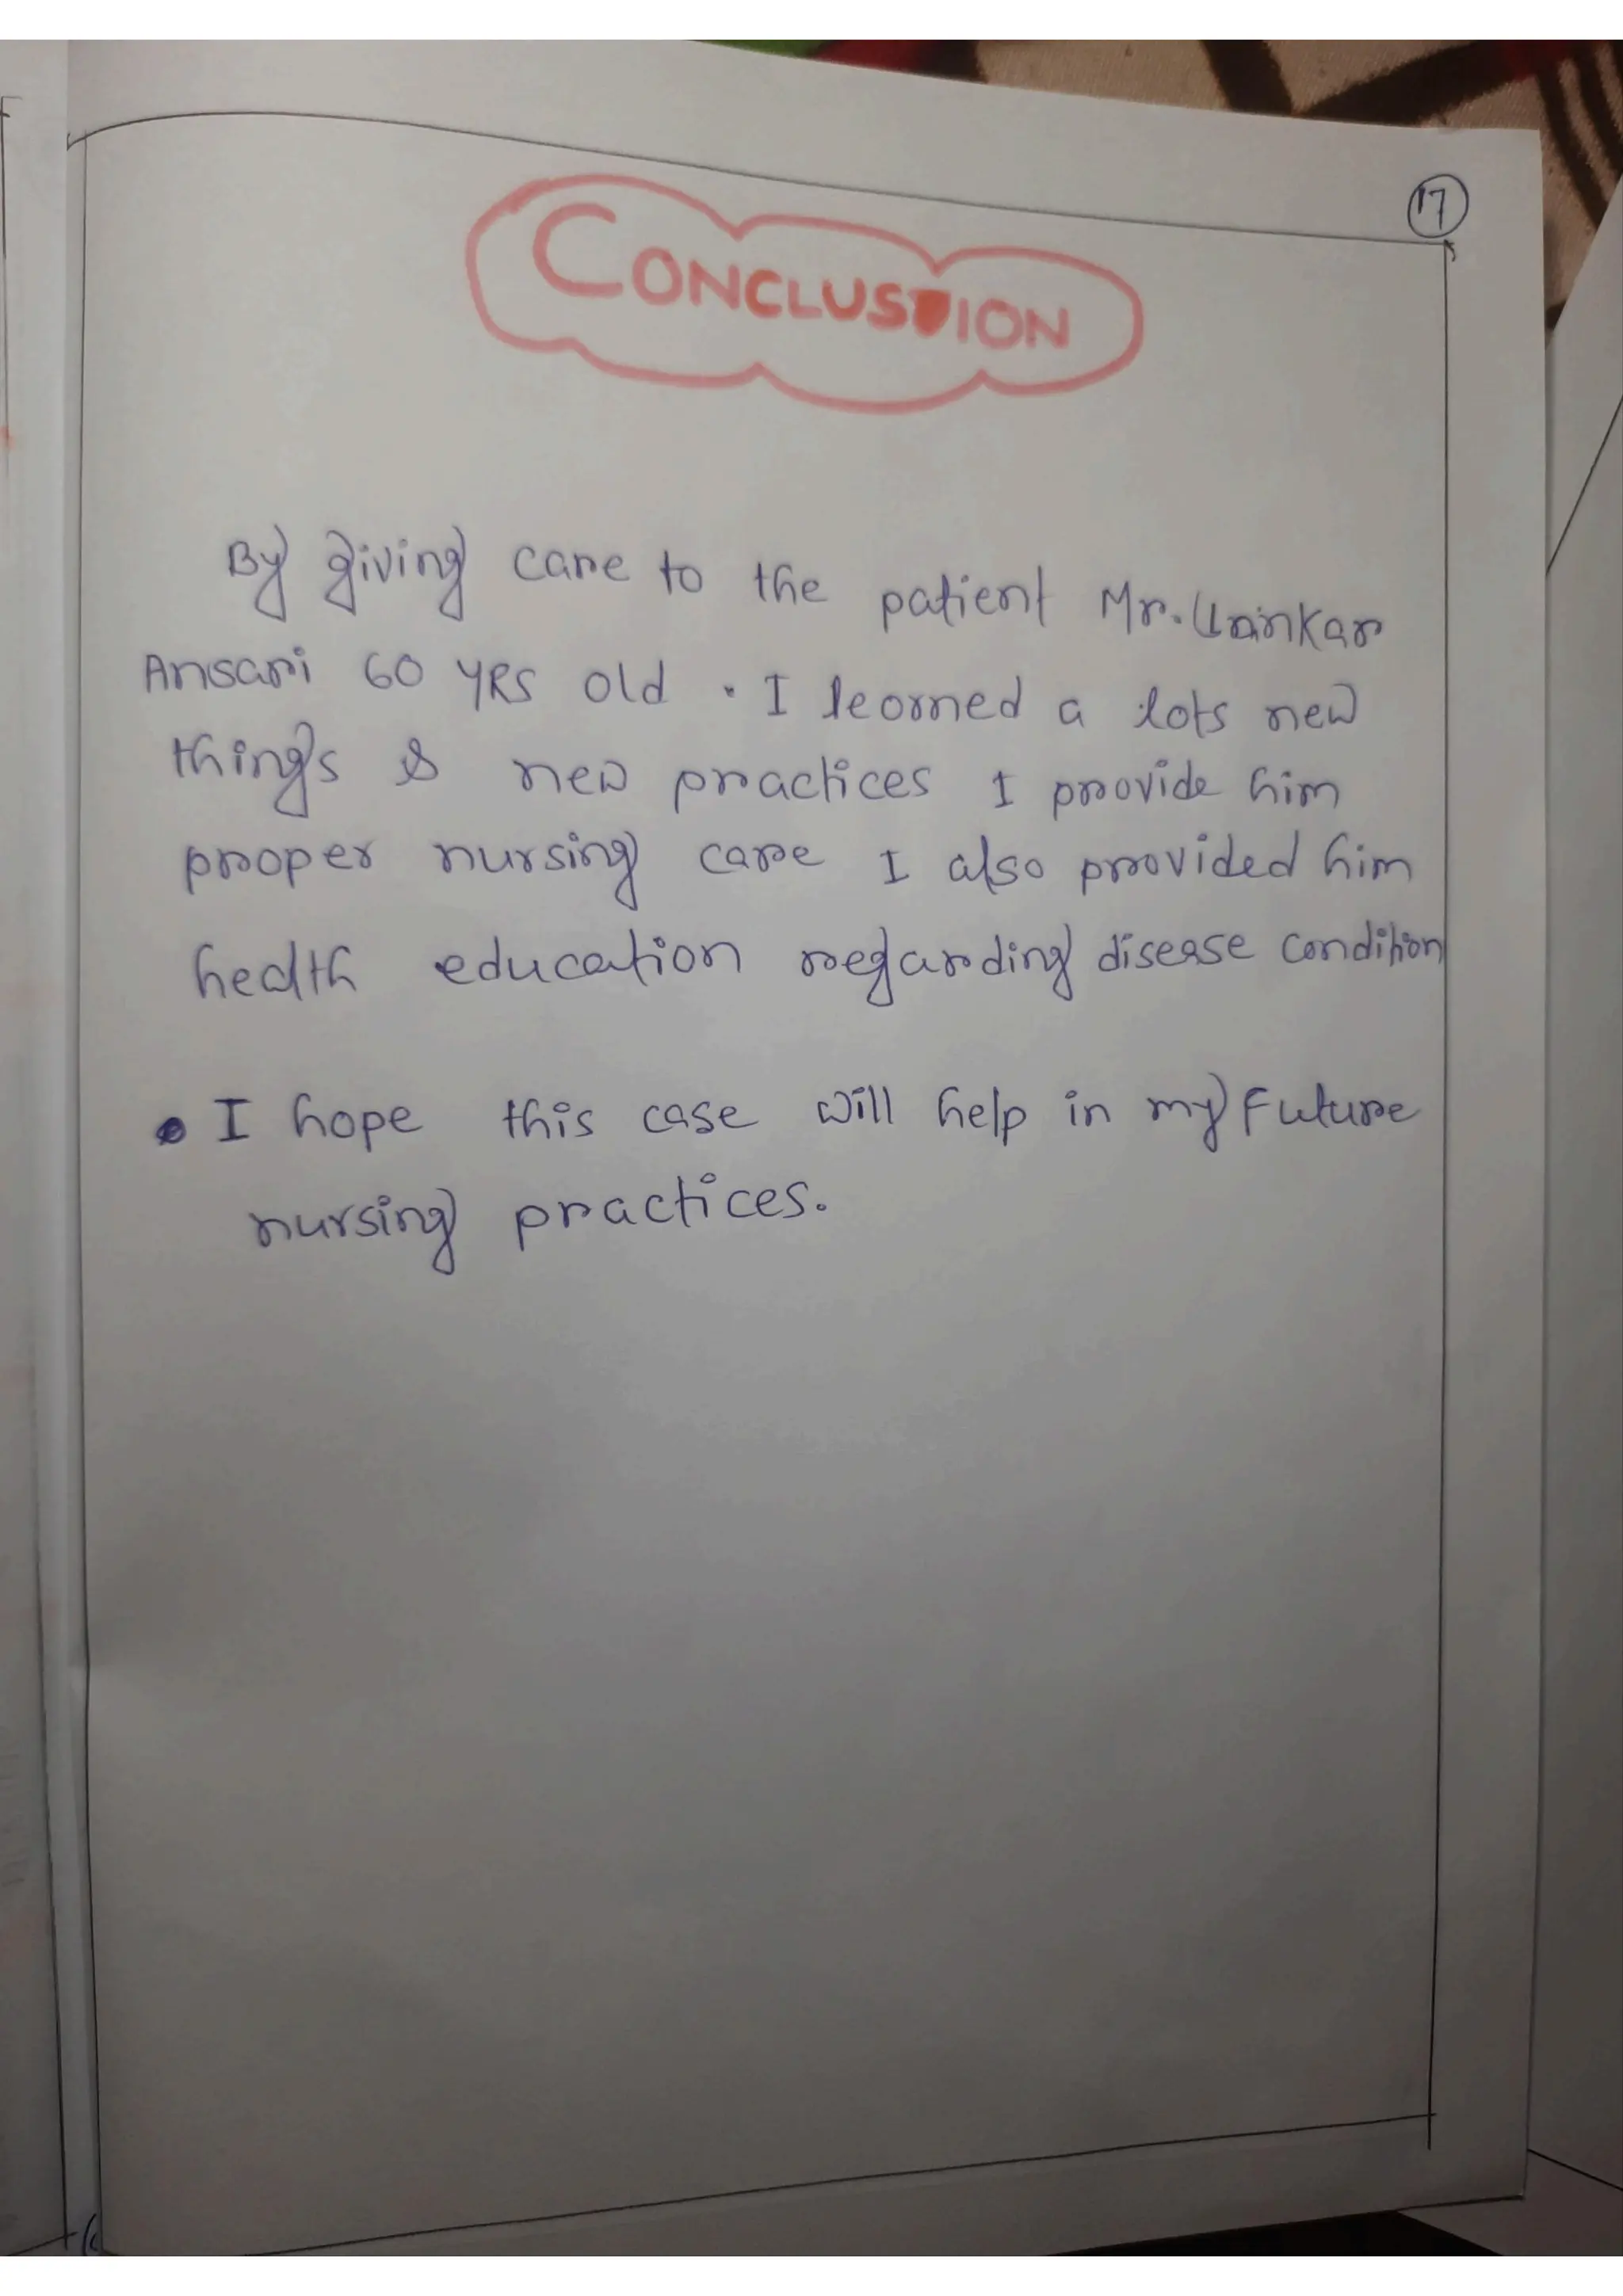 17
CONCLUSION
By giving care to the patient Mr.
Ansari 60 YRS old . I learned a lots new
things & new practices I provide him
proper nursing care I also provided him
health education regarding disease condition
• I hope this case will help in my Future
nursing practices.